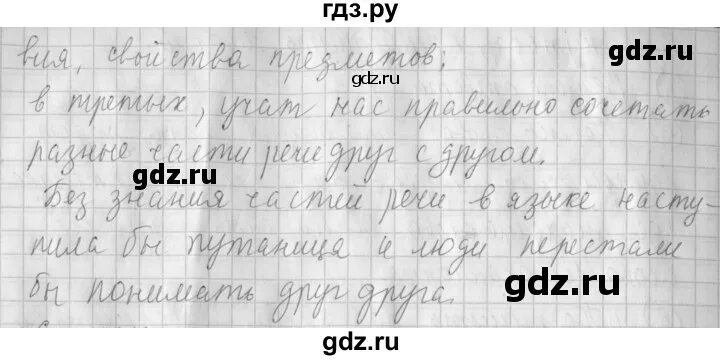 гдз.ру
вия, свойства предметов;
gdz.ru
gdz.ru
в третьих, учат нас правильно сочетать
gdz.ru
разные части речи друг с другом.
gdz.ru
Без знания частей речи в языке насту-
пила бы путаница и люди перестали
gdz.ru
бы понимать друг друга.
gdz.ru